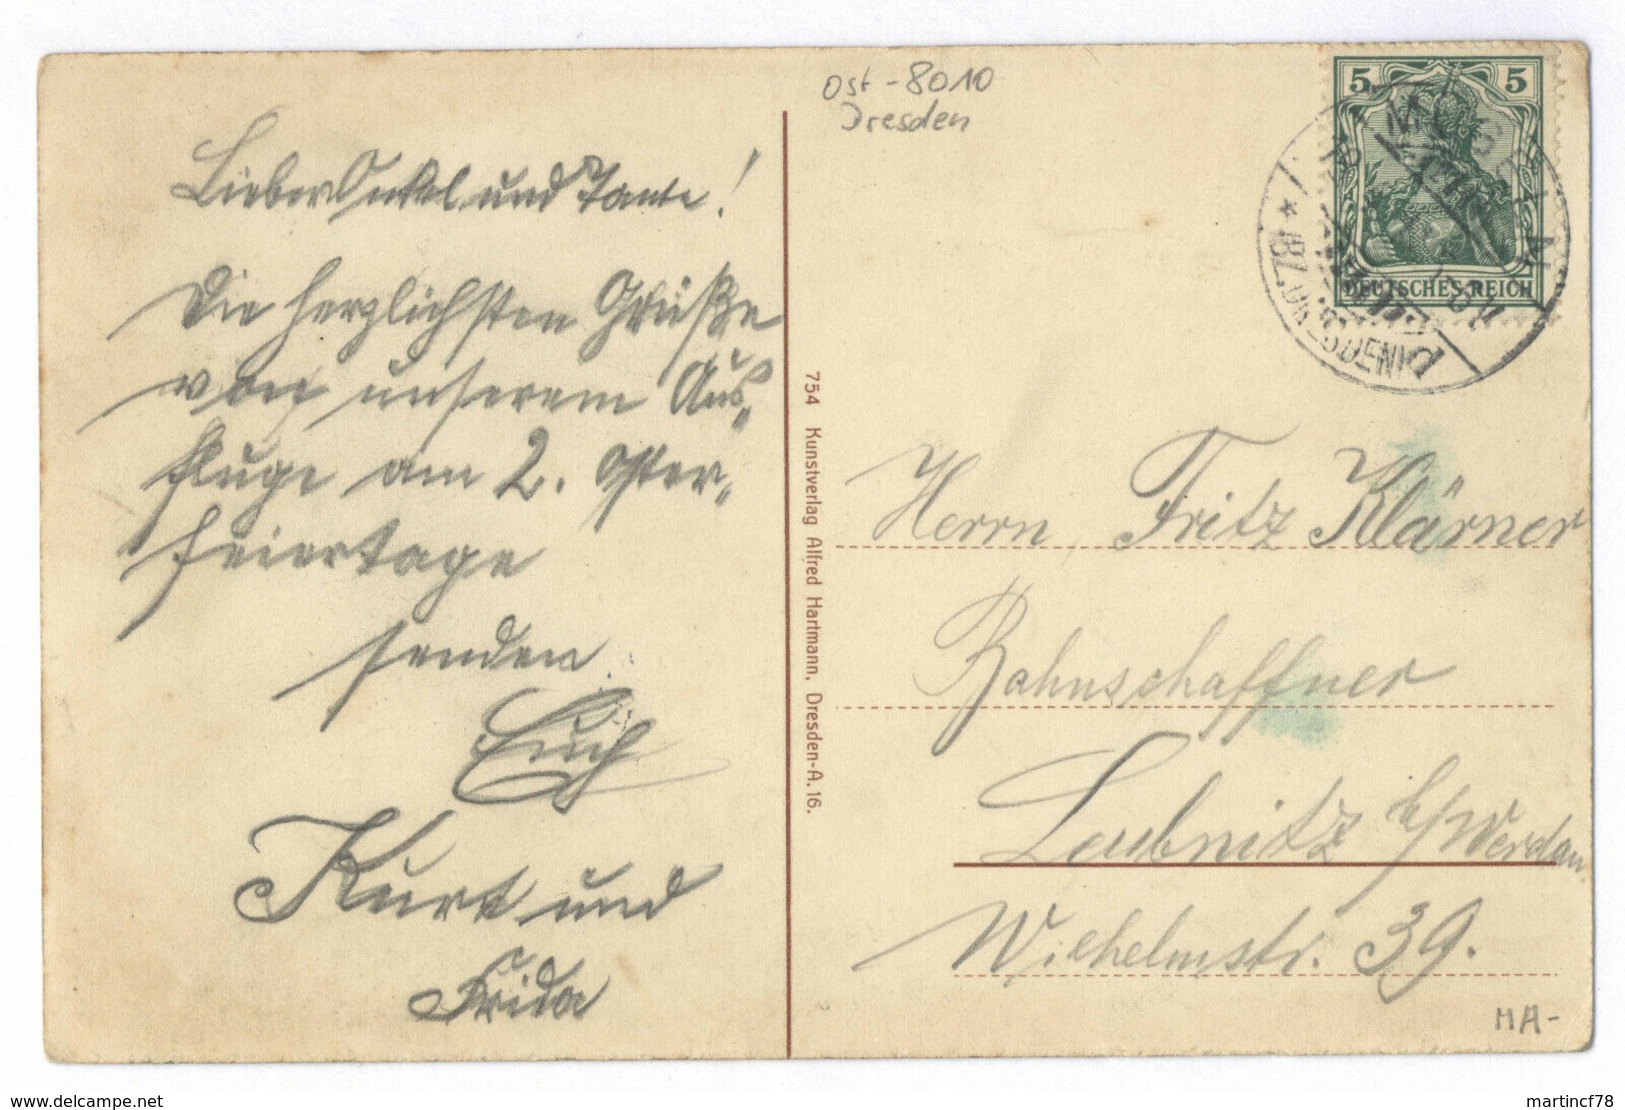 Lieber Onkel und Tante!
Die herzlichsten Grüße
von unserem Aus„
fluge am 2. Oster„
feiertage
senden
Euch
Kurt und
Frida
Ost-8010
Dresden
5 5
DEUTSCHES REICH
(BZ. DRESDEN)
754 Kunstverlag Alfred Hartmann, Dresden-A. 16.
Herrn Fritz Klärner
Bahnschaffner
Leubnitz b/Werdau.
Wilhelmstr. 39.
MA-
delcampe.net
martincf78